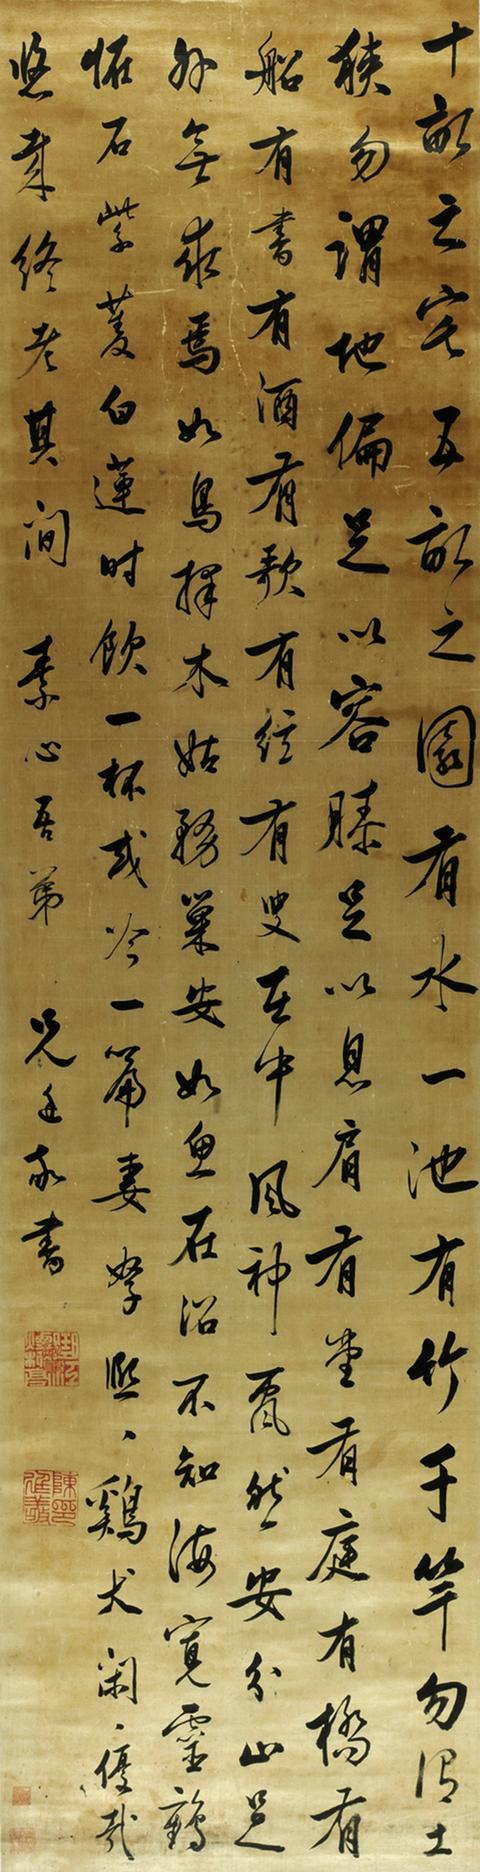 十畝之宅五畝之園有水一池有竹千竿勿謂土
狹勿謂地偏足以容膝足以息肩有堂有庭有橋有
船有書有酒有歌有絃有叟在中風神飄然安分止足
外無求焉如鳥擇木姑務巢安如魚在沼不知海寬靈鶴
怪石紫菱白蓮時飲一杯或吟一篇妻孥熙、鷄犬閑、優哉
悠哉終老其間 素心吾弟 兄廷敬書
陳印廷敬